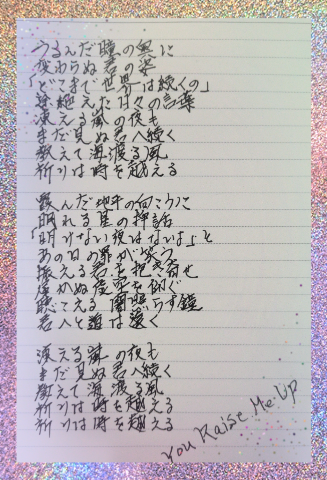 うるんだ瞳の奥に
変わらぬ君の姿
「どこまで世界は続くの」
途絶えた日々の言葉
凍える嵐の夜も
まだ見ぬ君へ続く
教えて海渡る風
祈りは時を越える
霞んだ地平の向こうに
眠れる星の挿話
「明けない夜はないよ」と
あの日の罪が笑う
震える君を抱き寄せ
届かぬ虚空を仰ぐ
聴こえる 闇照らす鐘
君へと道は遠く
凍える嵐の夜も
まだ見ぬ君へ続く
教えて 海渡る風
祈りは時を越える
祈りは時を越える
You Raise Me Up